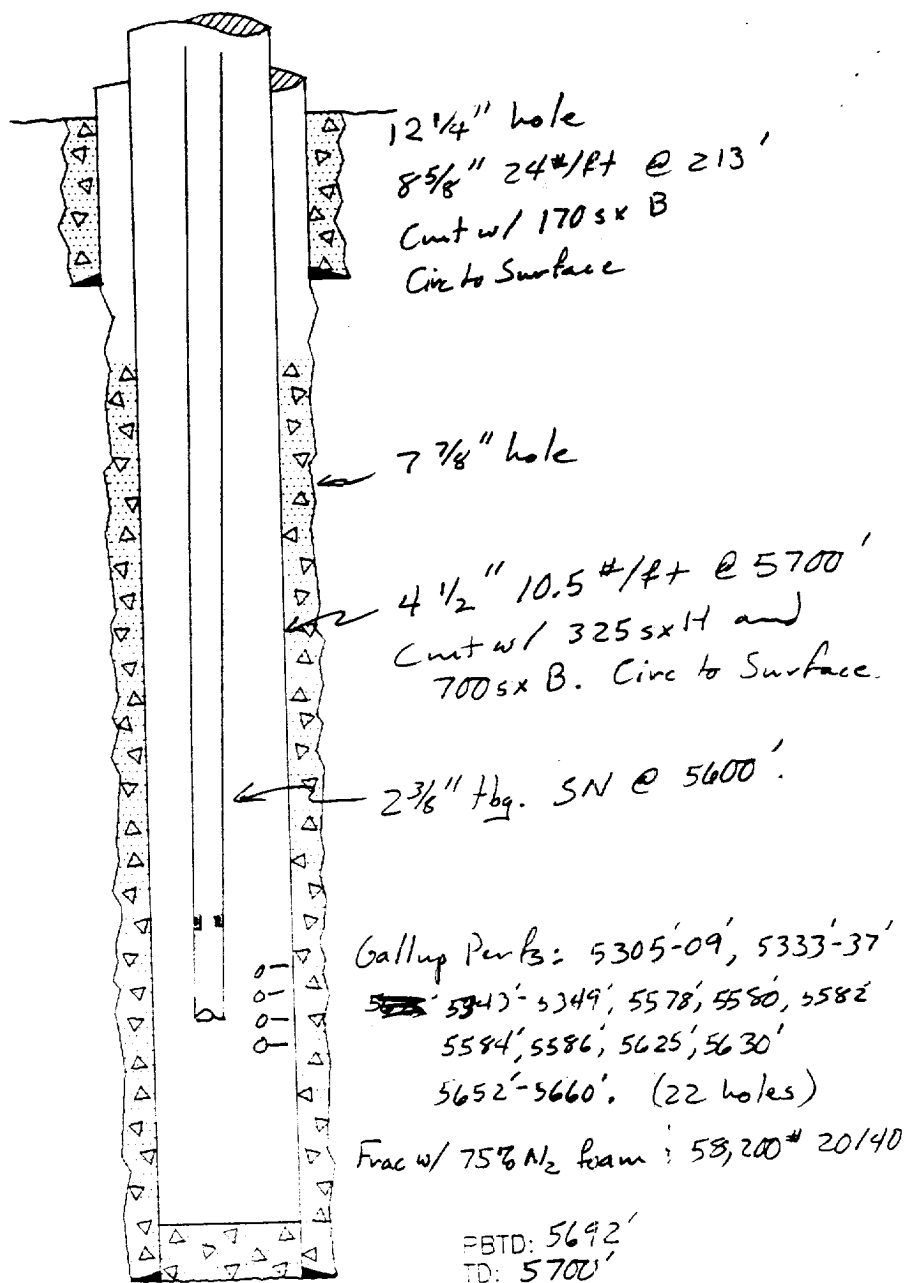 12 1/4" hole
8 5/8" 24#/ft @ 213'
Cmt w/ 170 sx B
Circ to Surface
7 7/8" hole
4 1/2" 10.5 #/ft @ 5700'
Cmt w/ 325 sx H and
700 sx B. Circ to Surface.
2 3/8" tbg. SN @ 5600'.
Gallup Perfs: 5305'-09', 5333'-37'
5343'-5349', 5578', 5580', 5582'
5584', 5586', 5625', 5630'
5652'-5660'. (22 holes)
Frac w/ 75% N2 foam ; 58,200# 20/40
PBTD: 5692'
TD: 5700'